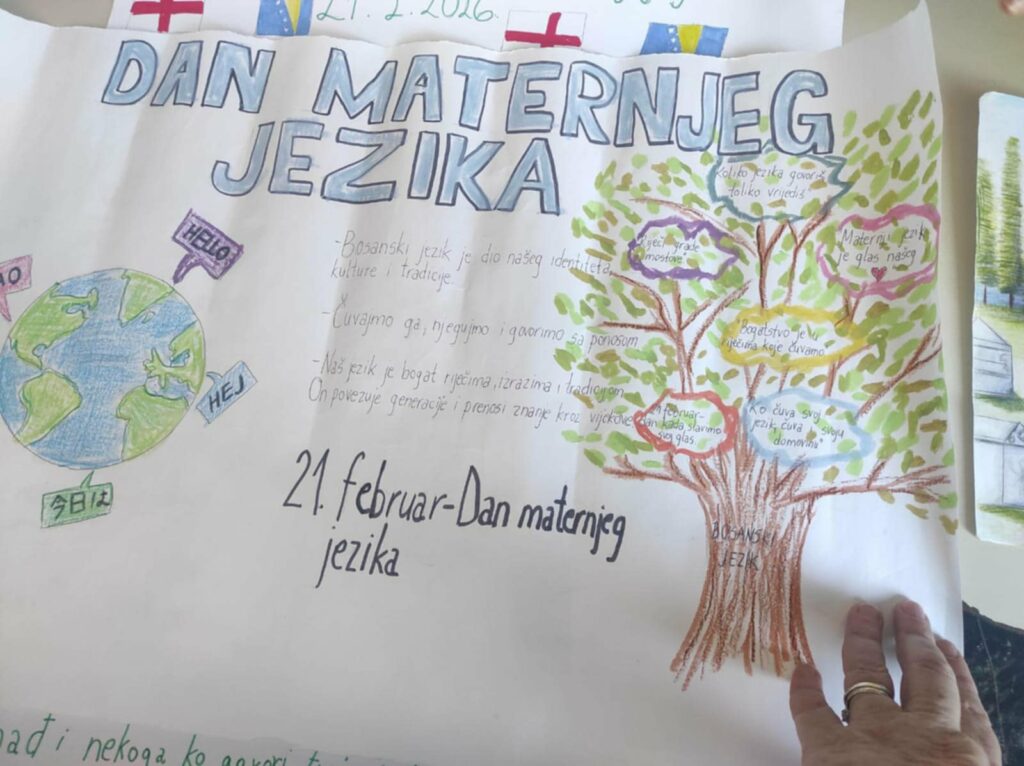 21.2.2026.
DAN MATERNJEG
JEZIKA
HELLO
AO
HEJ
今日は
-Bosanski jezik je dio našeg identiteta,
kulture i tradicije.
-Čuvajmo ga, njegujmo i govorimo sa ponosom
-Naš jezik je bogat riječima, izrazima i tradicijom
On povezuje generacije i prenosi znanje kroz vijekove
21. februar-Dan maternjeg
jezika
Koliko jezika govoriš
toliko vrijediš"
Riječi grade
mostove"
Maternji jezik
je glas našeg
"Bogatstvo je u
riječima koje čuvamo
februar-
dan kada slavimo
svoj glas
Ko čuva svoj
jezik, čuva i svoju
domovinu"
BOSANSKI
JEZIK
nađi nekoga ko govori